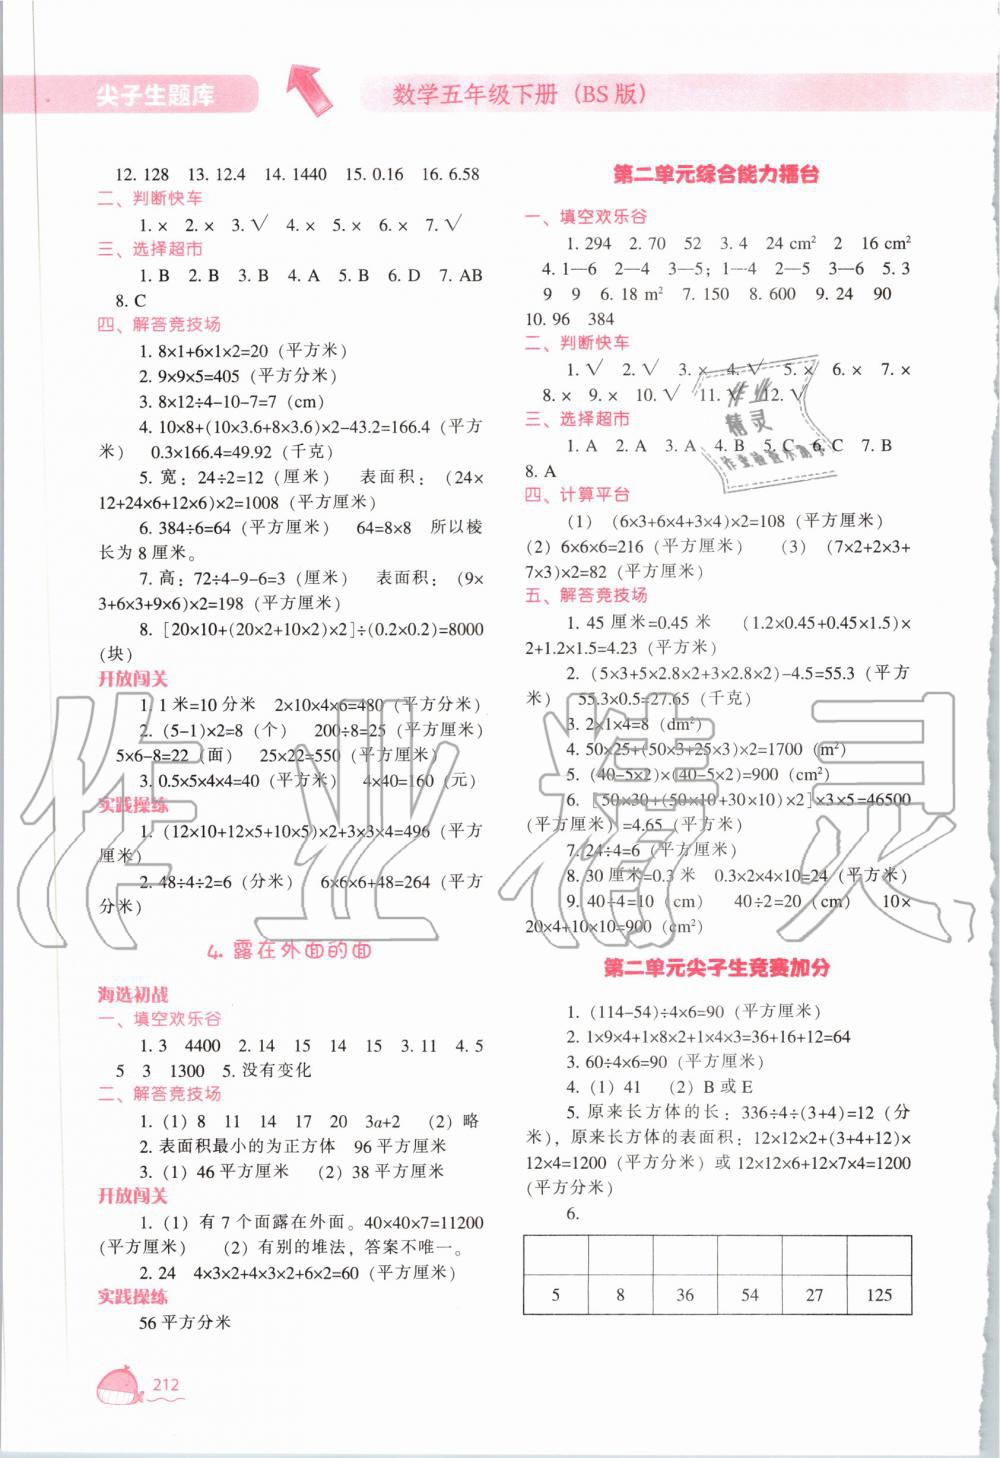 尖子生题库
数学五年级下册（BS版）
12. 128 13. 12.4 14. 1440 15. 0.16 16. 6.58
二、判断快车
1. × 2. × 3. √ 4. × 5. × 6. × 7. √
三、选择超市
1. B 2. B 3. B 4. A 5. B 6. D 7. AB
8. C
四、解答竞技场
1. 8×1+6×1×2=20（平方米）
2. 9×9×5=405（平方分米）
3. 8×12÷4-10-7=7（cm）
4. 10×8+(10×3.6+8×3.6)×2-43.2=166.4（平方
米） 0.3×166.4=49.92（千克）
5. 宽：24÷2=12（厘米） 表面积：（24×
12+24×6+12×6)×2=1008（平方厘米）
6. 384÷6=64（平方厘米） 64=8×8 所以棱
长为8厘米。
7. 高：72÷4-9-6=3（厘米） 表面积：（9×
3+6×3+9×6)×2=198（平方厘米）
8. [20×10+(20×2+10×2)×2]÷(0.2×0.2)=8000
（块）
开放闯关
1. 1米=10分米 2×10×4×6=480（平方分米）
2. (5-1)×2=8（个） 200÷8=25（平方厘米）
5×6-8=22（面） 25×22=550（平方厘米）
3. 0.5×5×4×4=40（平方米） 4×40=160（元）
实践操练
1. (12×10+12×5+10×5)×2+3×3×4=496（平方
厘米）
2. 48÷4÷2=6（分米） 6×6×6+48=264（平方
分米）
4. 露在外面的面
海选初战
一、填空欢乐谷
1. 3 4400 2. 14 15 14 15 3. 11 4. 5
5 3 1300 5. 没有变化
二、解答竞技场
1. (1) 8 11 14 17 20 3a+2 (2) 略
2. 表面积最小的为正方体 96平方厘米
3. (1) 46平方厘米 (2) 38平方厘米
开放闯关
1. (1) 有7个面露在外面。40×40×7=11200
（平方厘米） (2) 有别的堆法，答案不唯一。
2. 24 4×3×2+4×3×2+6×2=60（平方厘米）
实践操练
56平方分米
212
第二单元综合能力擂台
一、填空欢乐谷
1. 294 2. 70 52 3. 4 24 cm² 2 16 cm²
4. 1—6 2—4 3—5；1—4 2—5 3—6 5. 3
9 9 6. 18 m² 7. 150 8. 600 9. 24 90
10. 96 384
二、判断快车
1. √ 2. √ 3. × 4. √ 5. × 6. × 7. ×
8. × 9. × 10. √ 11. √ 12. √
三、选择超市
1. A 2. A 3. A 4. B 5. C 6. C 7. B
8. A
四、计算平台
(1) (6×3+6×4+3×4)×2=108（平方厘米）
(2) 6×6×6=216（平方厘米） (3) (7×2+2×3+
7×3)×2=82（平方厘米）
五、解答竞技场
1. 45厘米=0.45米 (1.2×0.45+0.45×1.5)×
2+1.2×1.5=4.23（平方米）
2. (5×3+5×2.8×2+3×2.8×2)-4.5=55.3（平方
米） 55.3×0.5=27.65（千克）
3. 2×1×4=8（dm²）
4. 50×25+(50×3+25×3)×2=1700（m²）
5. (40-5×2)×(40-5×2)=900（cm²）
6. [50×30+(50×10+30×10)×2]×3×5=46500
（平方厘米）=4.65（平方米）
7. 24÷4=6（平方厘米）
8. 30厘米=0.3米 0.3×2×4×10=24（平方米）
9. 40÷4=10（cm） 40÷2=20（cm） 10×
20×4+10×10=900（cm²）
第二单元尖子生竞赛加分
1. (114-54)÷4×6=90（平方厘米）
2. 1×9×4+1×8×2+1×4×3=36+16+12=64
3. 60÷4×6=90（平方厘米）
4. (1) 41 (2) B或E
5. 原来长方体的长：336÷4÷(3+4)=12（分
米），原来长方体的表面积：12×12×2+(3+4+12)×
12×4=1200（平方分米）或12×12×6+12×7×4=1200
（平方分米）
6.
5 8 36 54 27 125
作业精灵
作业
精灵
作业检查小助手